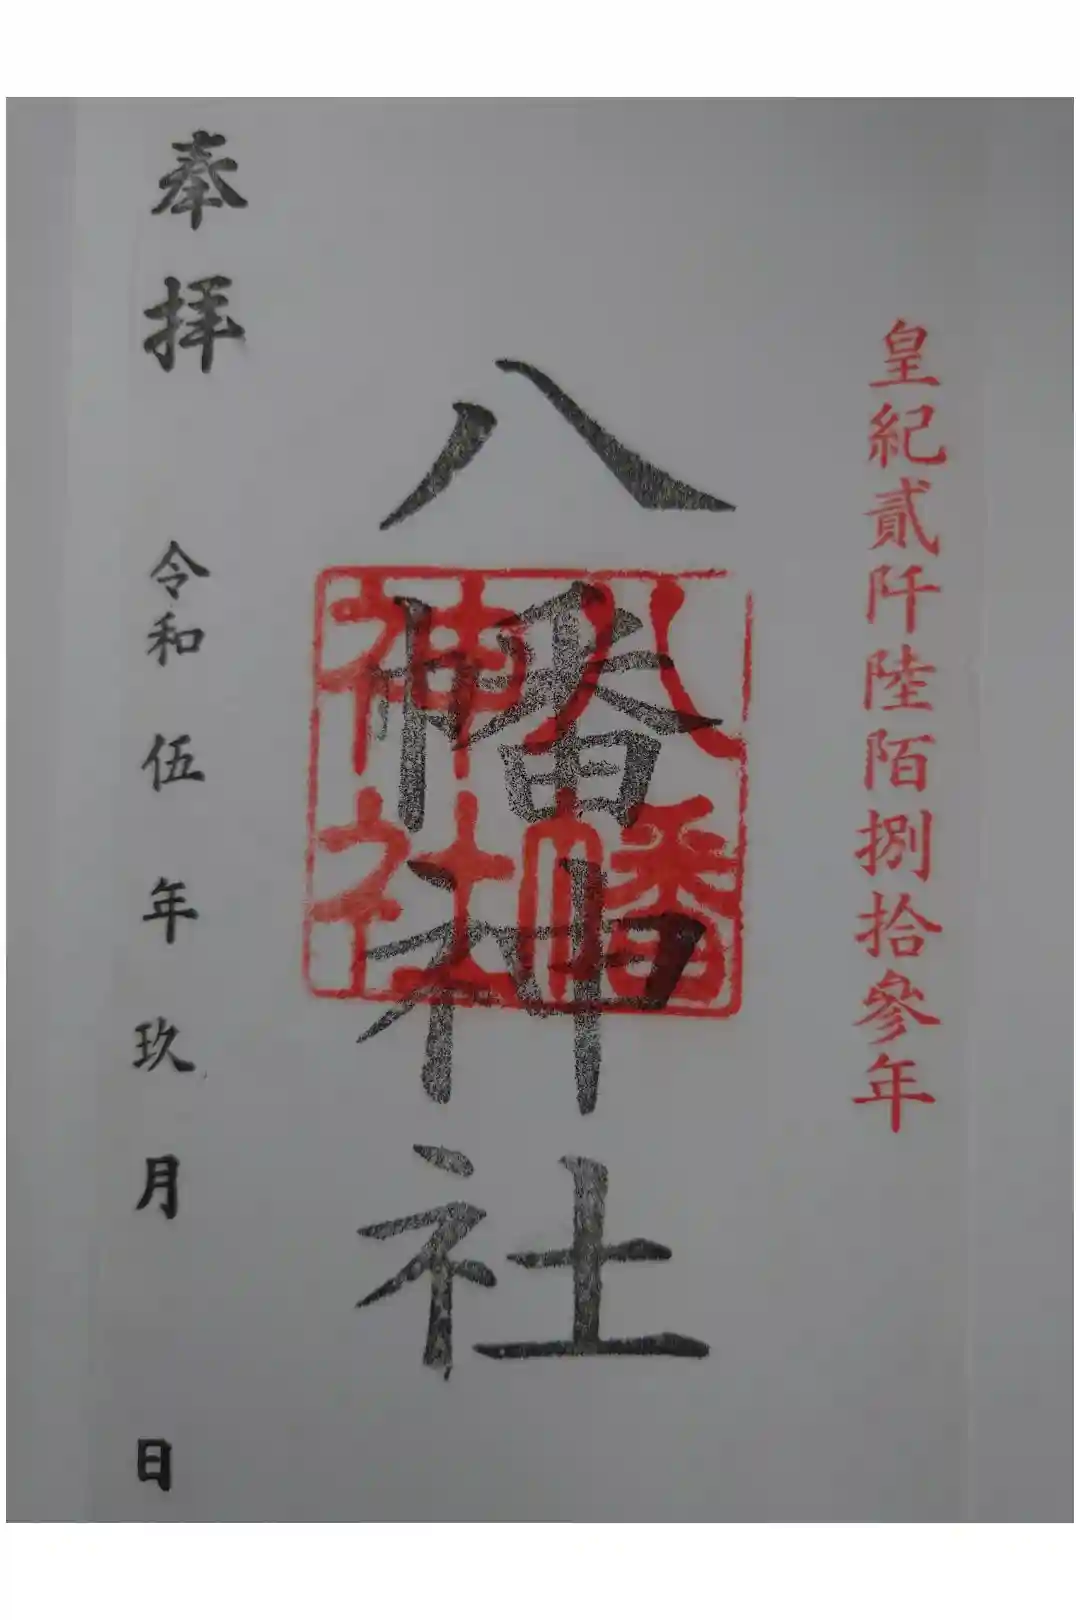 皇紀貳阡陸陌捌拾參年
八幡神社
八幡
神社
奉拝
令和伍年玖月 日